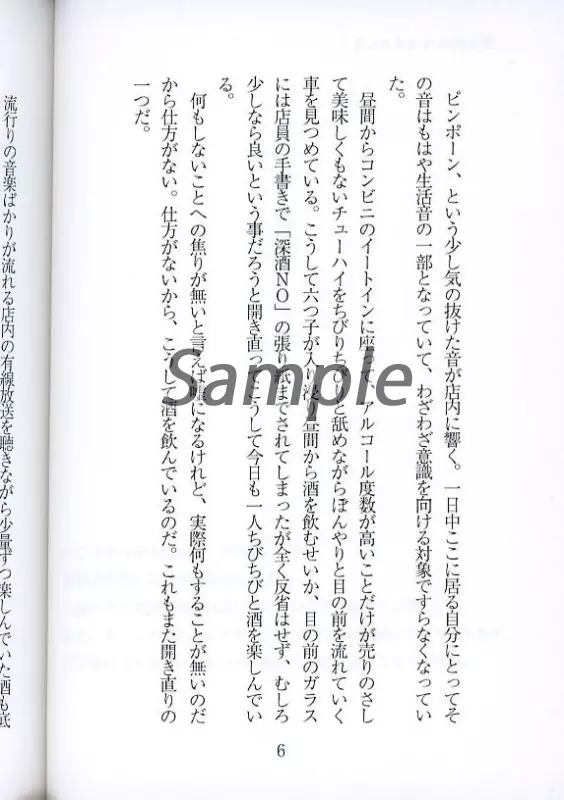 ピンポーン、という少し気の抜けた音が店内に響く。一日中ここに居る自分にとってそ
の音はもはや生活音の一部となっていて、わざわざ意識を向ける対象ですらなくなってい
た。
昼間からコンビニのイートインに座って、アルコール度数が高いことだけが売りのさし
て美味しくもないチューハイをちびりちびりと舐めながらぼんやりと目の前を流れていく
車を見つめている。こうして六つ子が入り浸り昼間から酒を飲むせいか、目の前のガラス
には店員の手書きで「深酒NO」の張り紙までされてしまったが全く反省はせず、むしろ
少しなら良いという事だろうと開き直ってこうして今日も一人ちびちびと酒を楽しんでい
る。
何もしないことへの焦りが無いと言えば嘘になるけれど、実際何もすることが無いのだ
から仕方がない。仕方がないから、こうして酒を飲んでいるのだ。これもまた開き直りの
一つだ。
流行りの音楽ばかりが流れる店内の有線放送を聴きながら少量ずつ楽しんでいた酒も底
6
Sample